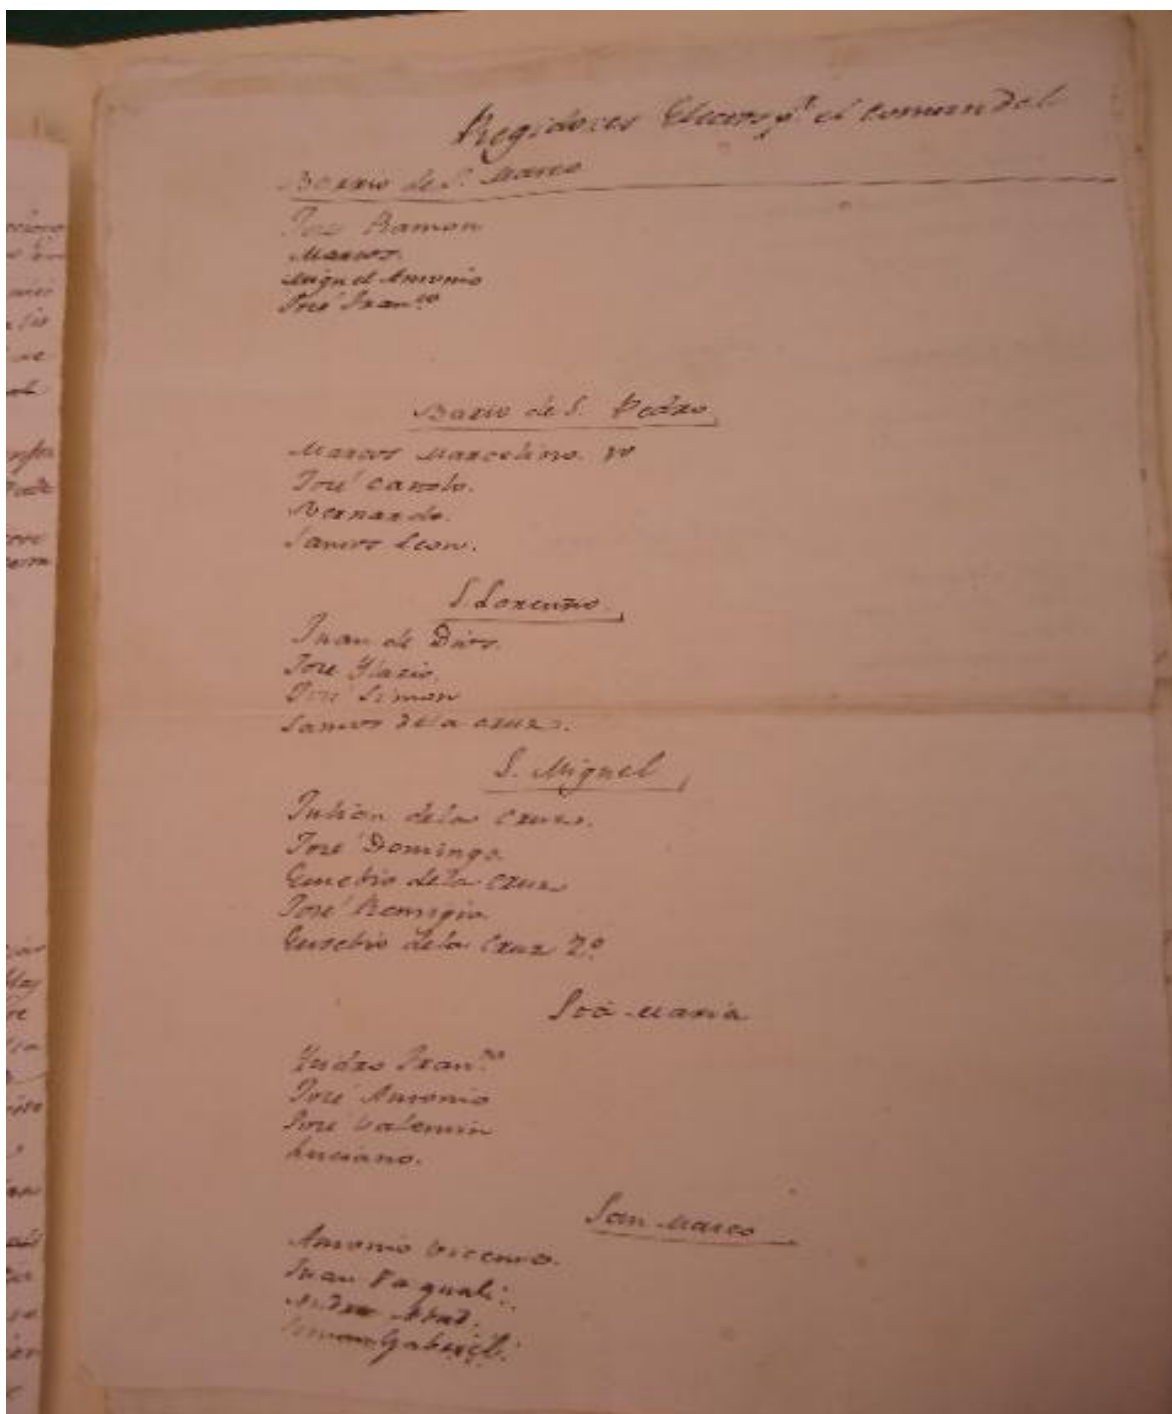 Regidores Electos p.r el comun del
Barrio de S. Marco
José Ramon
Marcos.
Miguel Antonio
José Fran.co
Barrio de S. Pedro
Marcos Marcelino.
José Canolo.
Bernardo.
Santos Leon.
S. Lorenzo.
Juan de Dios.
José Ylario.
José Simon
Santos de la Cruz.
S. Miguel
Julian de la Cruz.
José Domingo.
Eusebio de la Cruz
José Remigio.
Eusebio de la Cruz 2.º
Sta Maria
Ysidro Fran.co
José Antonio
José Valentin
Luciano.
San Marco
Antonio Vicente.
Juan Pasqual.
Andres Abad.
Simon Gabriel.